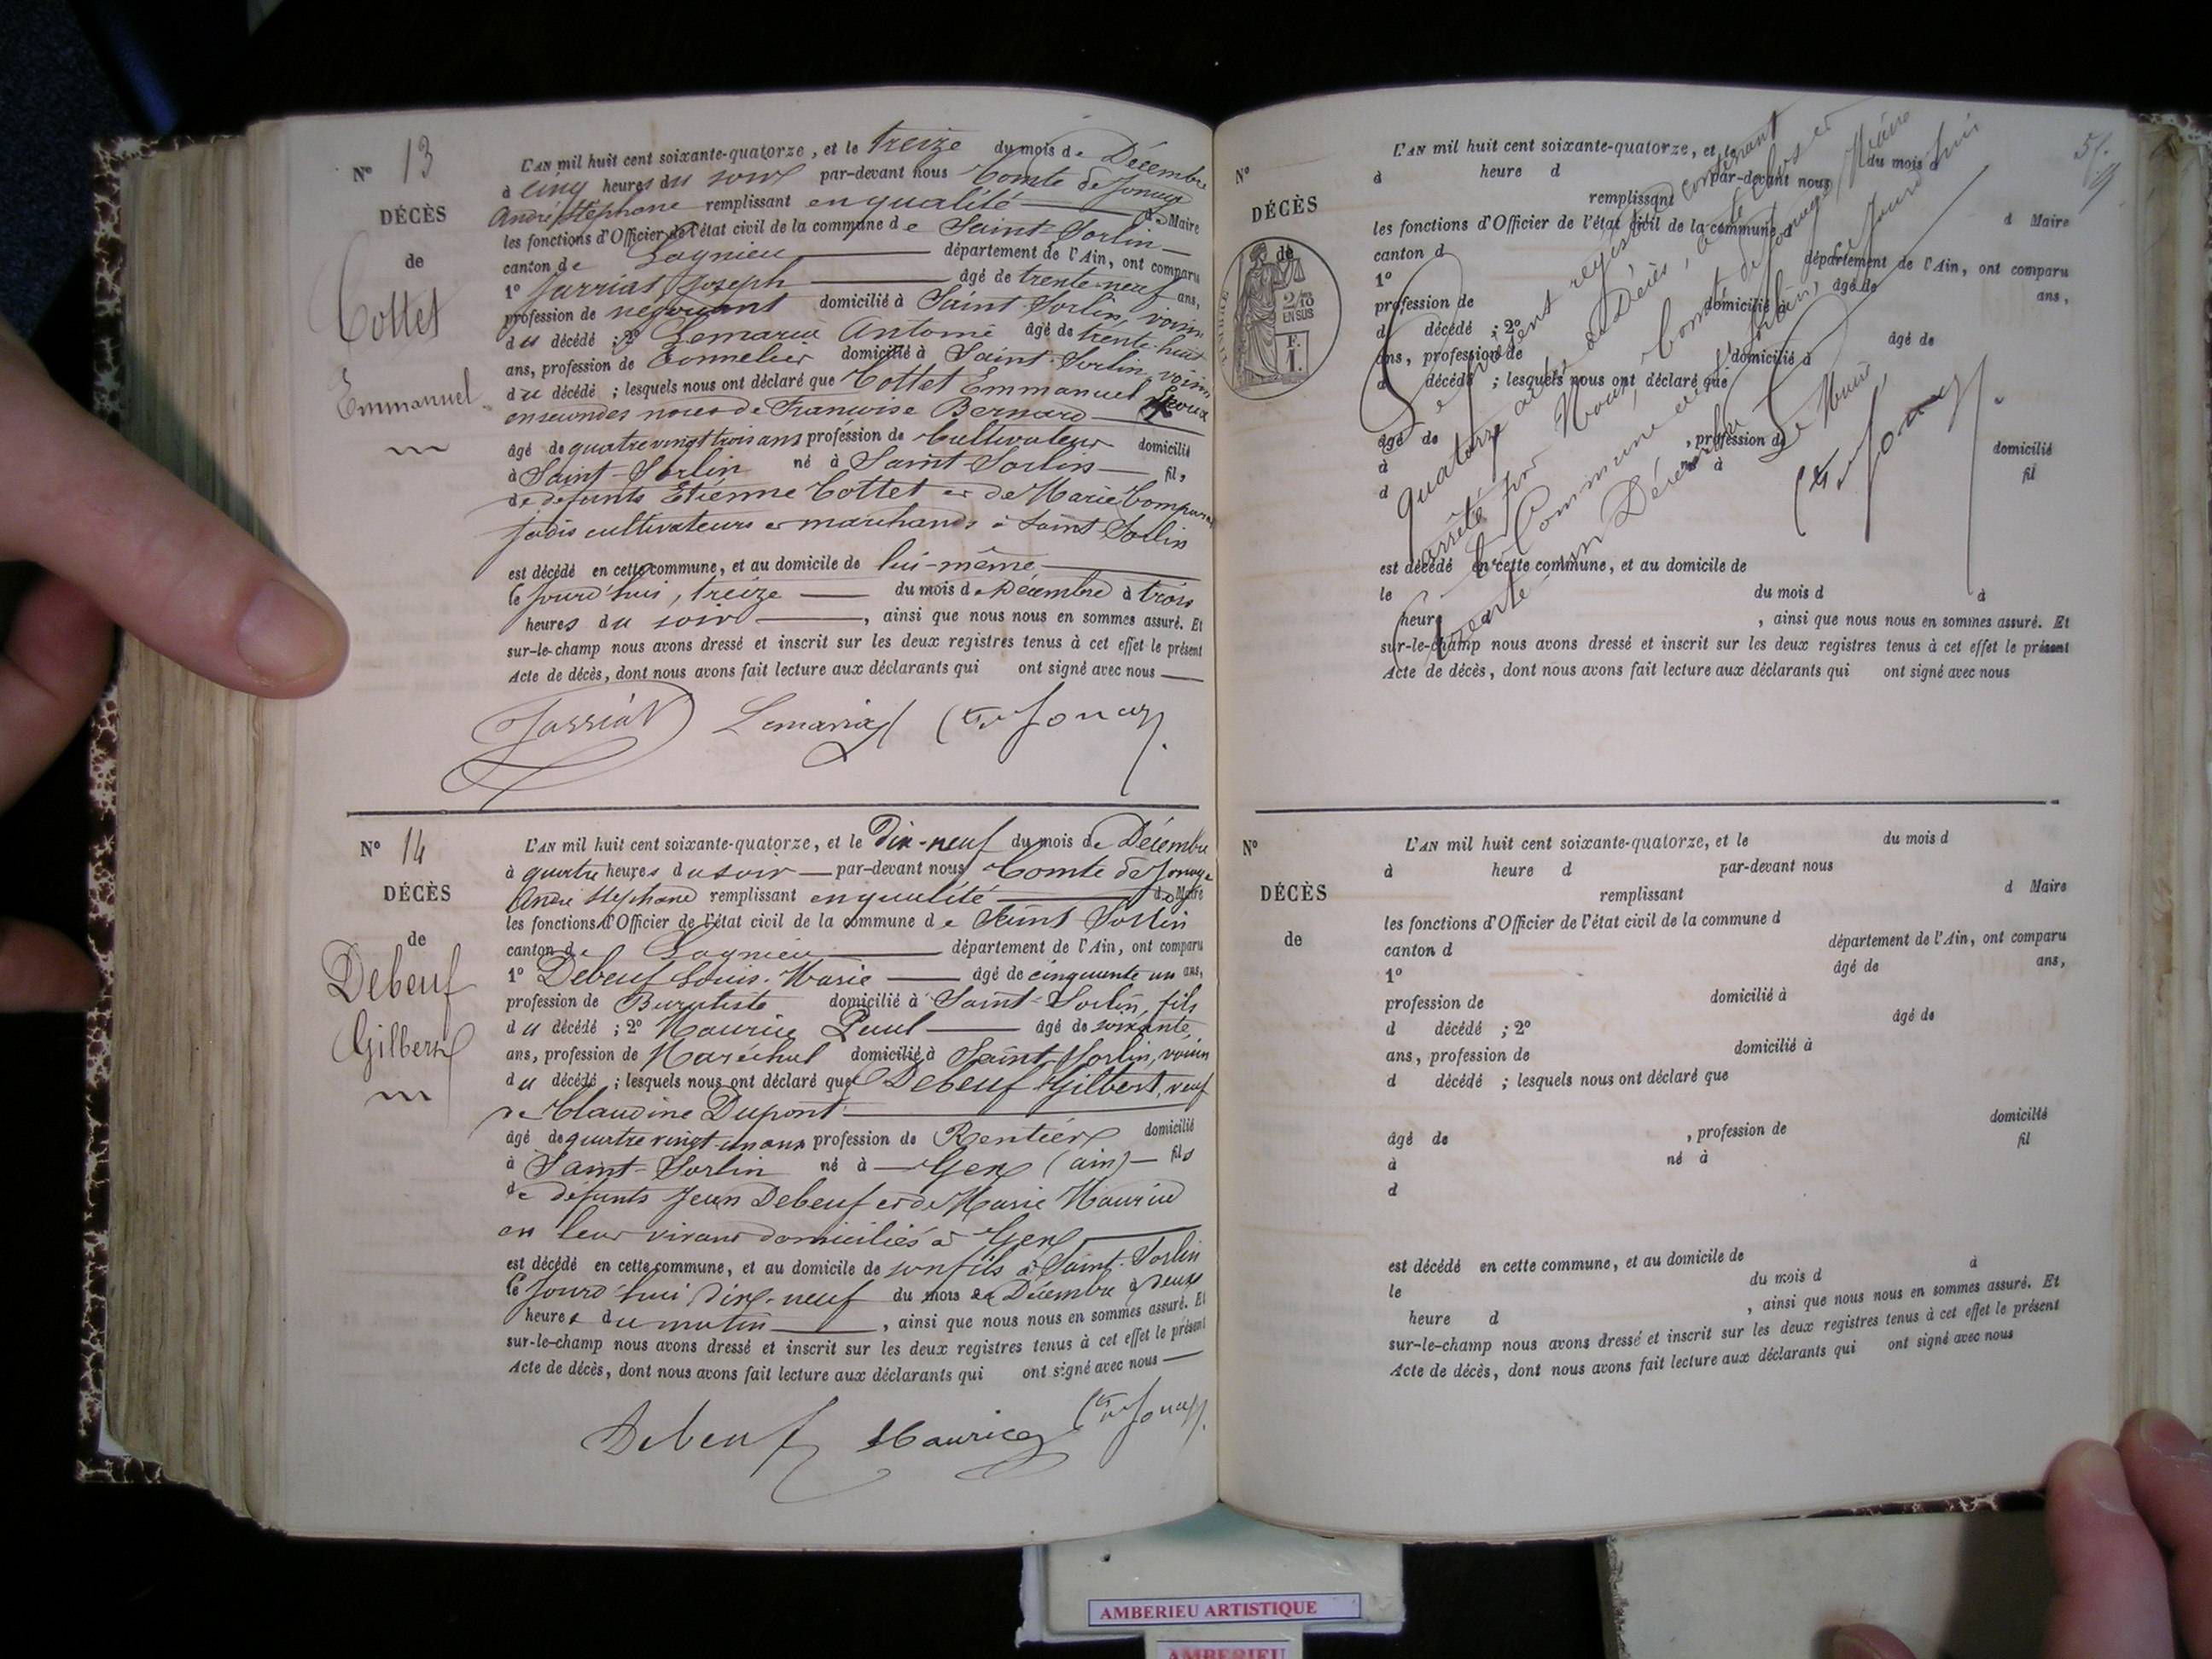 N° 13
DÉCÈS
de
Cottet
Emmanuel
L'AN mil huit cent soixante-quatorze, et le treize du mois de Décembre
à cinq heures du soir par-devant nous Comte de Jonage
André Stéphane remplissant en qualité de Maire
les fonctions d'Officier de l'état civil de la commune de Saint-Sorlin
canton de Lagnieu département de l'Ain, ont comparu
1° Jarriat Joseph âgé de trente-neuf ans,
profession de négociant domicilié à Saint-Sorlin, voisin
du décédé ; 2° Lemarca Antoine âgé de trente-huit
ans, profession de Tonnelier domicilié à Saint-Sorlin, voisin
du décédé ; lesquels nous ont déclaré que Cottet Emmanuel époux
en secondes noces de Françoise Bernard
âgé de quatre vingt trois ans profession de Cultivateur domicilié
à Saint-Sorlin né à Saint-Sorlin fils
de défunts Etienne Cottet et de Marie
jadis cultivateurs et marchands à Saint-Sorlin
est décédé en cette commune, et au domicile de lui-même
le jourd'hui, treize du mois de Décembre à trois
heures du soir, ainsi que nous nous en sommes assuré. Et
sur-le-champ nous avons dressé et inscrit sur les deux registres tenus à cet effet le présent
Acte de décès, dont nous avons fait lecture aux déclarants qui ont signé avec nous
Jarriat Cte de Jonage
N° 14
DÉCÈS
de
Debeuf
Gilbert
L'AN mil huit cent soixante-quatorze, et le Dix-neuf du mois de Décembre
à quatre heures du soir par-devant nous Comte de Jonage
André Stéphane remplissant en qualité de Maire
les fonctions d'Officier de l'état civil de la commune de Saint Sorlin
canton de Lagnieu département de l'Ain, ont comparu
1° Debeuf Louis-Marie âgé de cinquante un ans,
profession de Buraliste domicilié à Saint-Sorlin, fils
du décédé ; 2° Maurice Paul âgé de soixante,
ans, profession de Maréchal domicilié à Saint-Sorlin, voisin
du décédé ; lesquels nous ont déclaré que Debeuf Gilbert, veuf
de Claudine Dupont
âgé de quatre vingt-un ans profession de Rentier domicilié
à Saint-Sorlin né à Gex (ain) fils
de défunts Jean Debeuf et de Marie Maurice
en leur vivant domiciliés à Gex
est décédé en cette commune, et au domicile de son fils à Saint-Sorlin
le jourd'hui Dix-neuf du mois de Décembre à deux
heures du matin, ainsi que nous nous en sommes assuré. Et
sur-le-champ nous avons dressé et inscrit sur les deux registres tenus à cet effet le présent
Acte de décès, dont nous avons fait lecture aux déclarants qui ont signé avec nous
Debeuf Maurice Cte de Jonage
N°
DÉCÈS
de
2/10 EN SUS
F. 1.
L'AN mil huit cent soixante-quatorze, et le du mois d
à heure d par-devant nous
remplissant
les fonctions d'Officier de l'état civil de la commune d d Maire
canton d département de l'Ain, ont comparu
1° âgé de ans,
profession de domicilié à
d décédé ; 2° âgé de
ans, profession de domicilié à
d décédé ; lesquels nous ont déclaré que
âgé de , profession de domicilié
à né à fil
d
est décédé en cette commune, et au domicile de
le du mois d à
heure d, ainsi que nous nous en sommes assuré. Et
sur-le-champ nous avons dressé et inscrit sur les deux registres tenus à cet effet le présent
Acte de décès, dont nous avons fait lecture aux déclarants qui ont signé avec nous
Le présent registre contenant
quatorze actes de Décès, a été clos et
arrêté par Nous, Comte de Jonage, Maire
de la Commune de St Sorlin, ce jourd'hui
trente un Décembre
Le Maire,
Cte de Jonage
N°
DÉCÈS
de
L'AN mil huit cent soixante-quatorze, et le du mois d
à heure d par-devant nous
remplissant d Maire
les fonctions d'Officier de l'état civil de la commune d
canton d département de l'Ain, ont comparu
1° âgé de ans,
profession de domicilié à
d décédé ; 2° âgé de
ans, profession de domicilié à
d décédé ; lesquels nous ont déclaré que
âgé de , profession de domicilié
à né à fil
d
est décédé en cette commune, et au domicile de
le du mois d à
heure d , ainsi que nous nous en sommes assuré. Et
sur-le-champ nous avons dressé et inscrit sur les deux registres tenus à cet effet le présent
Acte de décès, dont nous avons fait lecture aux déclarants qui ont signé avec nous
AMBERIEU ARTISTIQUE
AMBERIEU